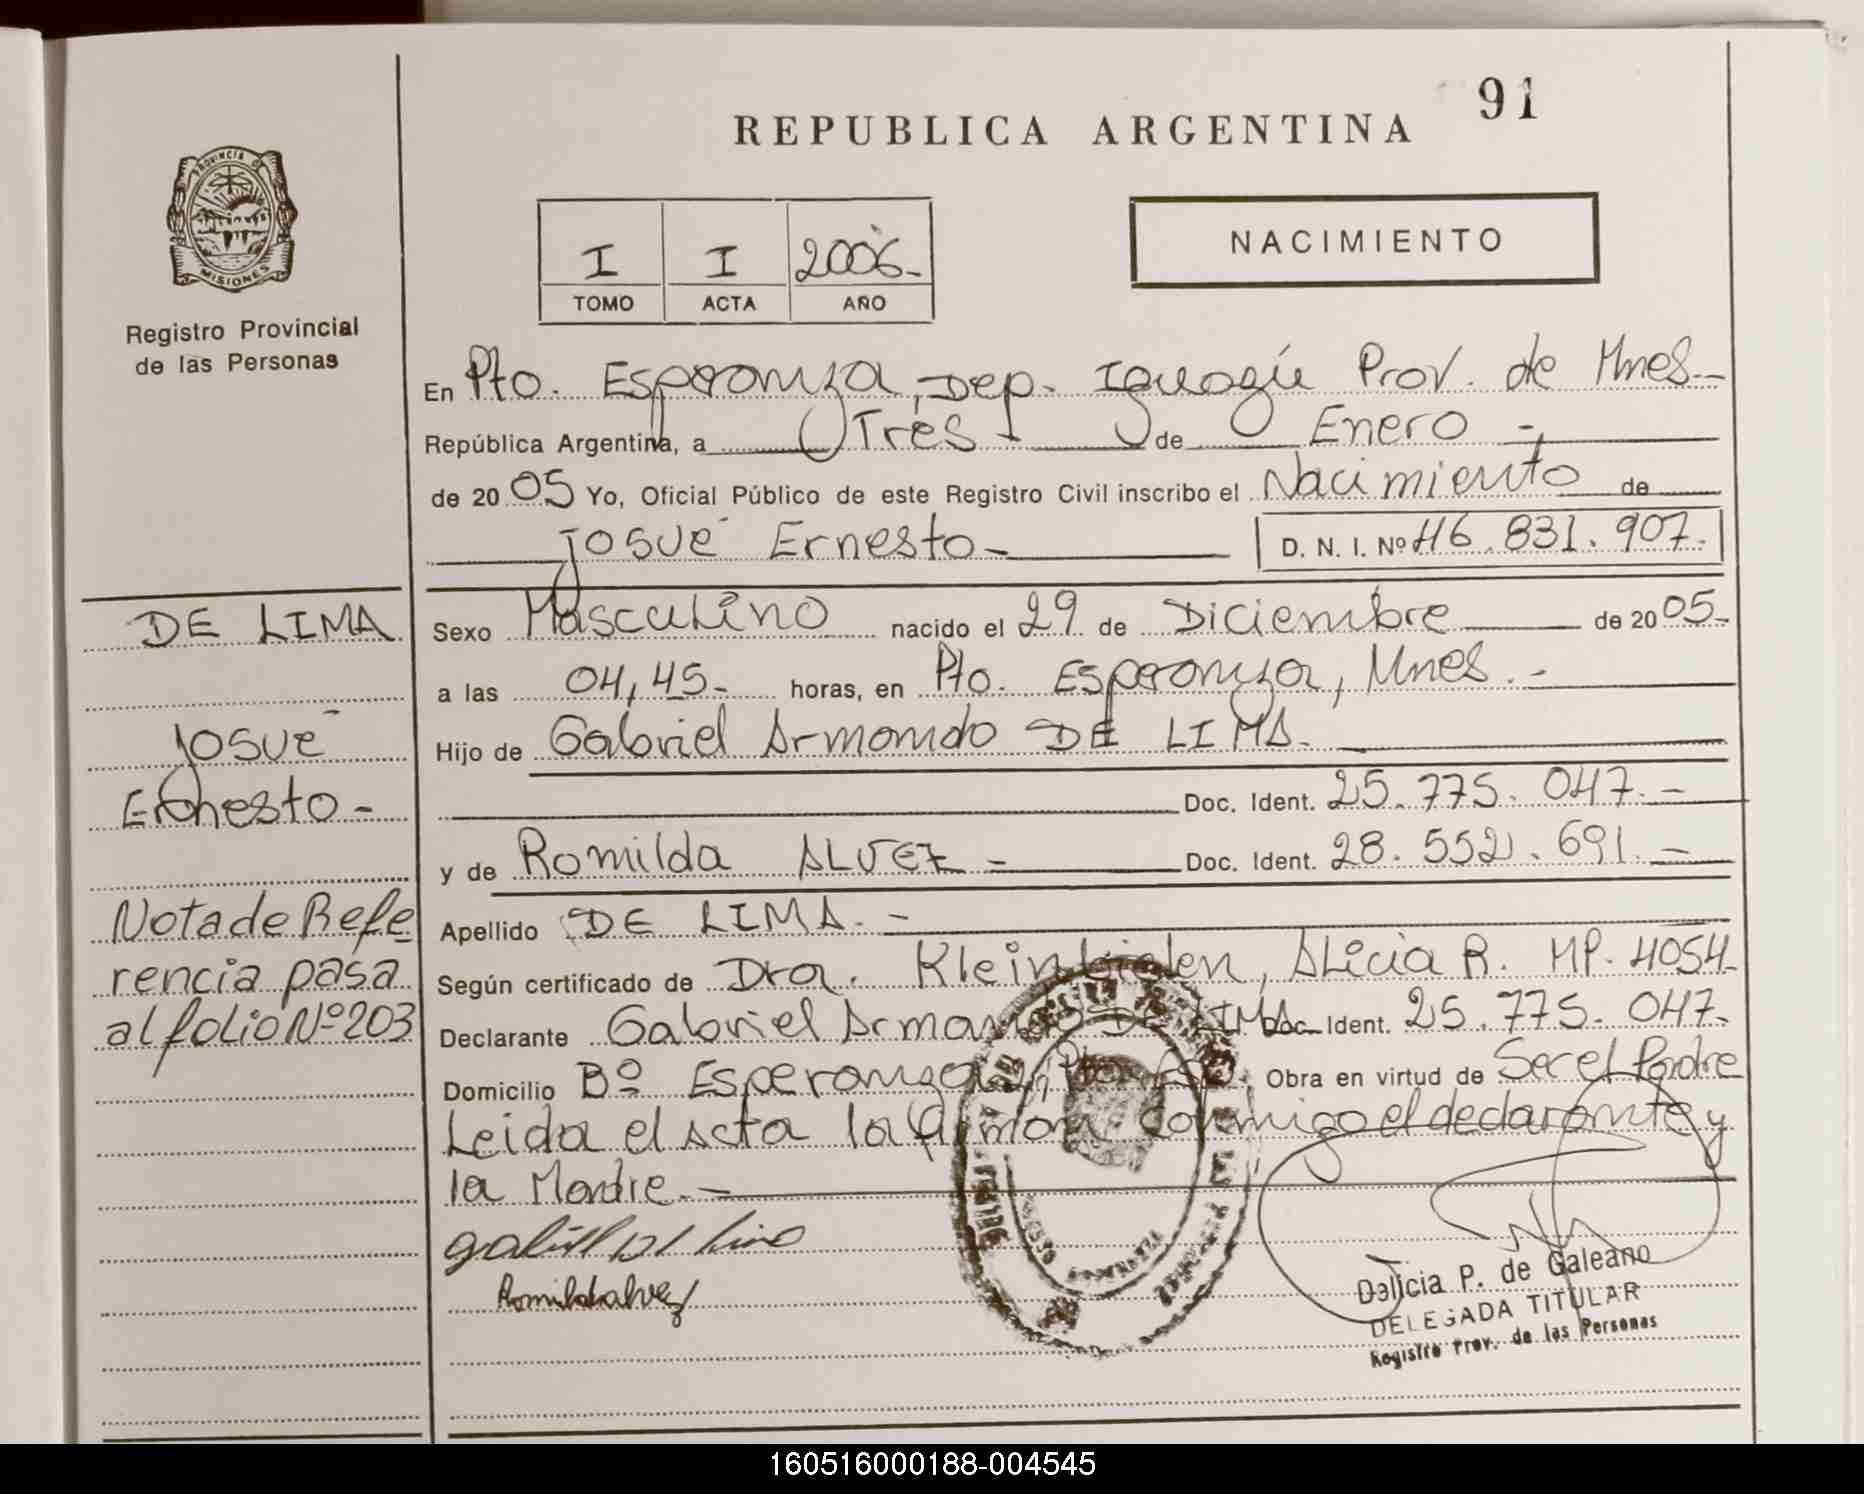 91
REPUBLICA ARGENTINA
PROVINCIA DE
MISIONES
Registro Provincial
de las Personas
I I 2006-
TOMO ACTA AÑO
NACIMIENTO
En Pto. Esperanza, Dep. Iguazú Prov. de Mnes-
República Argentina, a Tres - de Enero -,
de 20 05 Yo, Oficial Público de este Registro Civil inscribo el Nacimiento de
Josué Ernesto- D. N. I. Nº 46.831.907.
DE LIMA
Josué
Ernesto-
Nota de Refe
rencia pasa
al folio Nº 203
Sexo Masculino nacido el 29 de Diciembre de 20 05-
a las 04,45- horas, en Pto. Esperanza, Mnes.-
Hijo de Gabriel Armando DE LIMA.
Doc. Ident. 25.775.047.-
y de Romilda ALVEZ - Doc. Ident. 28.552.691.-
Apellido DE LIMA.-
Según certificado de Dra. Kleinbielen, Alicia R. MP. 4054-
Declarante Gabriel Armando DE LIMA Doc. Ident. 25.775.047-
Domicilio Bº Esperanza, Pto. Esp. Obra en virtud de Ser el Padre
Leida el Acta la firman conmigo el declarante y
la Madre.-
Gabriel De Lima
Romilda alvez
Dalicia P. de Galeano
DELEGADA TITULAR
Registro Prov. de las Personas
160516000188-004545